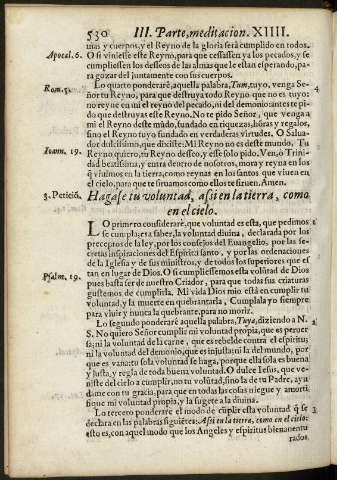 530 III. Parte, meditacion. XIIII.
mas y cuerpos, y el Reyno de la gloria será cumplido en todos.
Apocal. 6. O si viniesse este Reyno, para que cessassen ya los pecados, y se
cumpliessen los desseos de las almas que le estan esperando, pa-
ra gozar del juntamente con sus cuerpos.
Lo quarto ponderaré, aquella palabra, Tuum, tuyo, venga Se- 4
Rom. 5. ñor tu Reyno, para que destruya todo Reyno que no es tuyo:
no reyne en mi el reyno del pecado, ni del demonio: antes te pi-
do que destruyas este Reyno. No te pido Señor, que venga a
mi el Reyno deste mũdo, fundado en riquezas, hõras y regalos,
sino el Reyno tuyo fundado en verdaderas virtudes. O Salua-
Ioann. 19. dor dulcissimo, que dixiste: Mi Reyno no es deste mundo. Tu
Reyno quiero, tu Reyno desseo, y esse solo pido. Ven, ò Trini-
dad beatissima, y entra dentro de nosotros, mora y reyna en los
q̃ viuimos en la tierra, como reynas en los santos que viuen en
el cielo, para que te siruamos como ellos te siruen. Amen.
3. Peticiõ. Hagase tu voluntad, assi en la tierra, como
en el cielo.
LO primero consideraré, que voluntad es esta, que pedimos
se cumpla; era saber, la voluntad diuina, declarada por los
preceptos de la ley, por los consejos del Euangelio, por las se-
cretas inspiraciones del Espiritu santo, y por las ordenaciones
de la Iglesia y de sus ministros, y de todos los superiores que es-
Psalm. 29. tan en lugar de Dios. O si cumpliessemos esta volũtad de Dios
pues basta ser de nuestro Criador, para que todas sus criaturas
gustemos de cumplirla. Mi vida Dios mio está en cumplir tu
voluntad, y la muerte en quebrantarla, Cumplala yo siempre
para viuir y nunca la quebrante, para no morir.
Lo segundo ponderaré aquella palabra, Tuya, diziendo a N. 2
S. No quiero Señor cumplir mi voluntad propia, que es peruer
sa; ni la voluntad de la carne, que es rebelde contra el espiritu;
ni la voluntad del demonio, que es injusta; ni la del mundo, por
que es vana: tu sola voluntad se haga, porque ella sola es buena
y justa, y regla de toda buena voluntad. O dulce Iesus, que ve-
niste del cielo a cumplir, no tu volũtad, sino la de tu Padre, ayu
dame con tu gracia, para que en todas las cosas niegue y amorti-
fique mi voluntad propia, y la sugete a la diuina.
Lo tercero ponderaré el modo de cũplir esta voluntad q̃ se 3
declara en las palabras siguiẽtes: Assi en la tierra, como en el cielo:
esto es, con aquel modo que los Angeles y espiritus bienauentu
rados